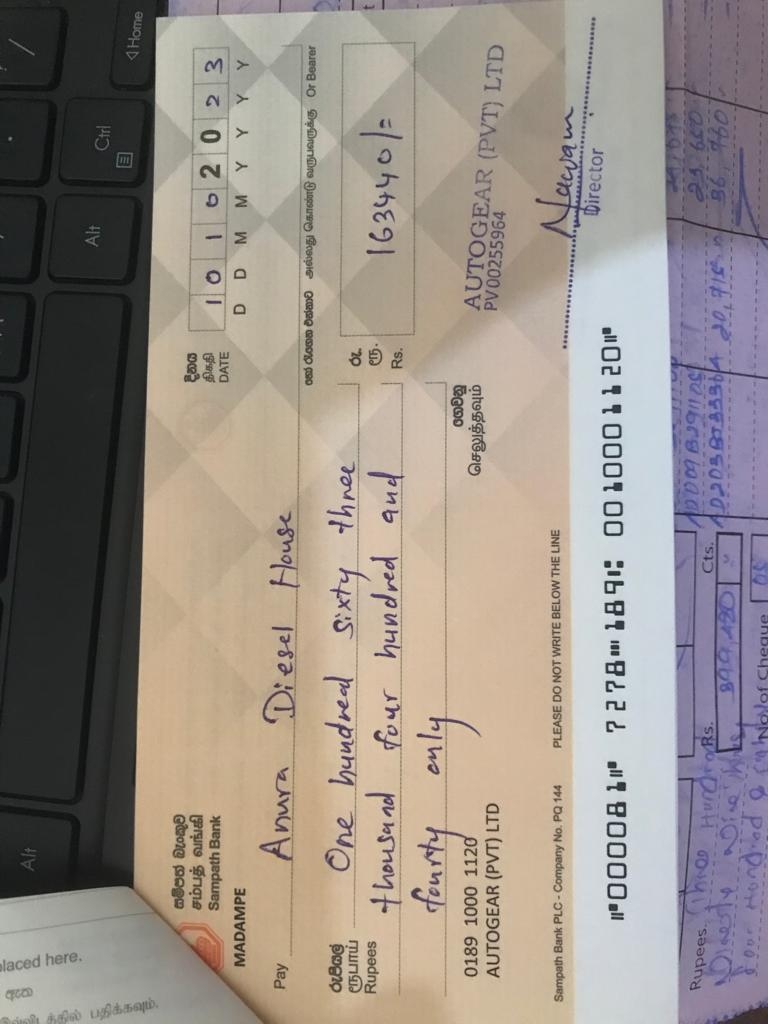 සම්පත් බැංකුව
சம்பத் வங்கி
Sampath Bank
MADAMPE
දිනය
திகதி
DATE
1 0 1 0 2 0 2 3
D D M M Y Y Y Y
Pay Anura Diesel House
හෝ රැගෙන එන්නාට அல்லது கொண்டு வருபவருக்கு Or Bearer
රුපියල්
ரூபாய்
Rupees
One hundred sixty three
thousand four hundred and
fourty only
රු.
ரூ.
Rs.
163440/=
ගෙවනු
செலுத்தவும்
0189 1000 1120
AUTOGEAR (PVT) LTD
AUTOGEAR (PVT) LTD
PV00255964
Director
Sampath Bank PLC - Company No. PQ 144 PLEASE DO NOT WRITE BELOW THE LINE
⑈000081⑈ 7278⑉189⑆ 0010001120⑈
laced here.
ඇත
பதிக்கவும்.
Alt
Alt
Ctrl
Home
/
Rupees.
Rs.
Cts.
No. of Cheque